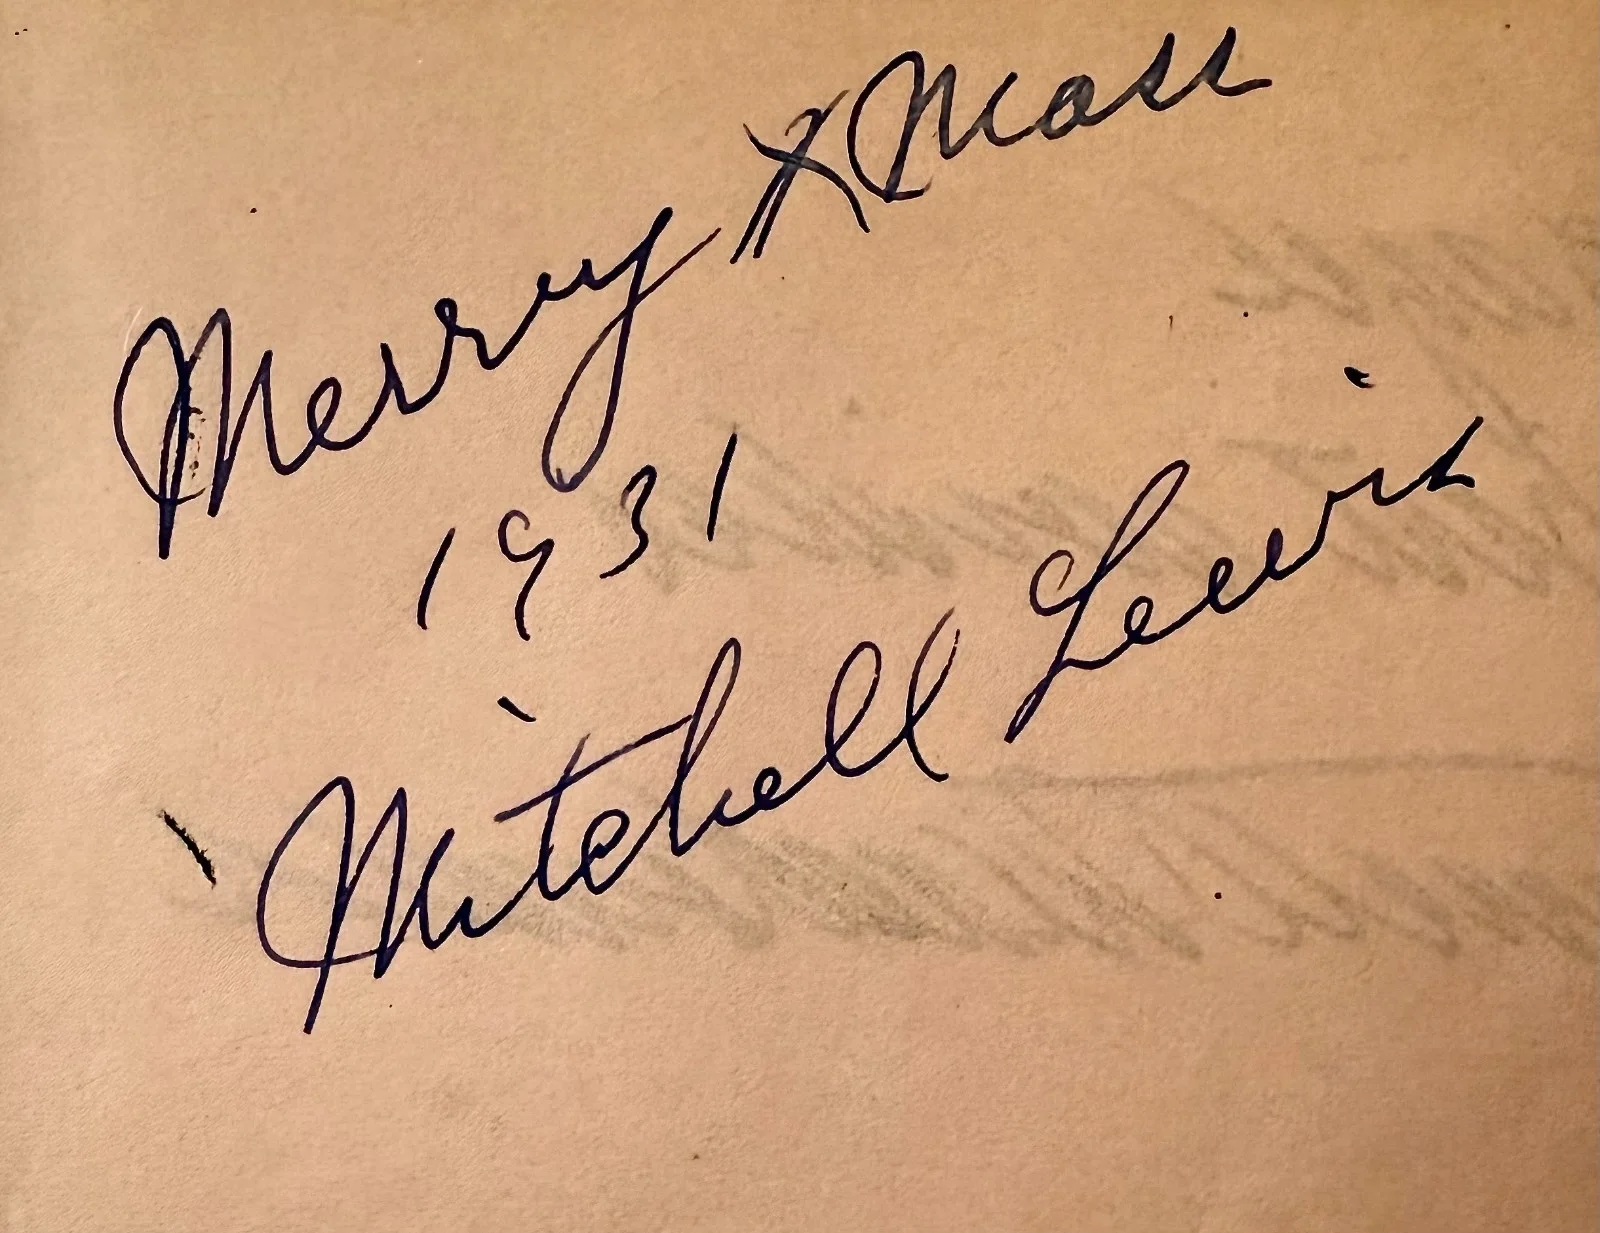 Merry XMass
1931
Mitchell Lewis